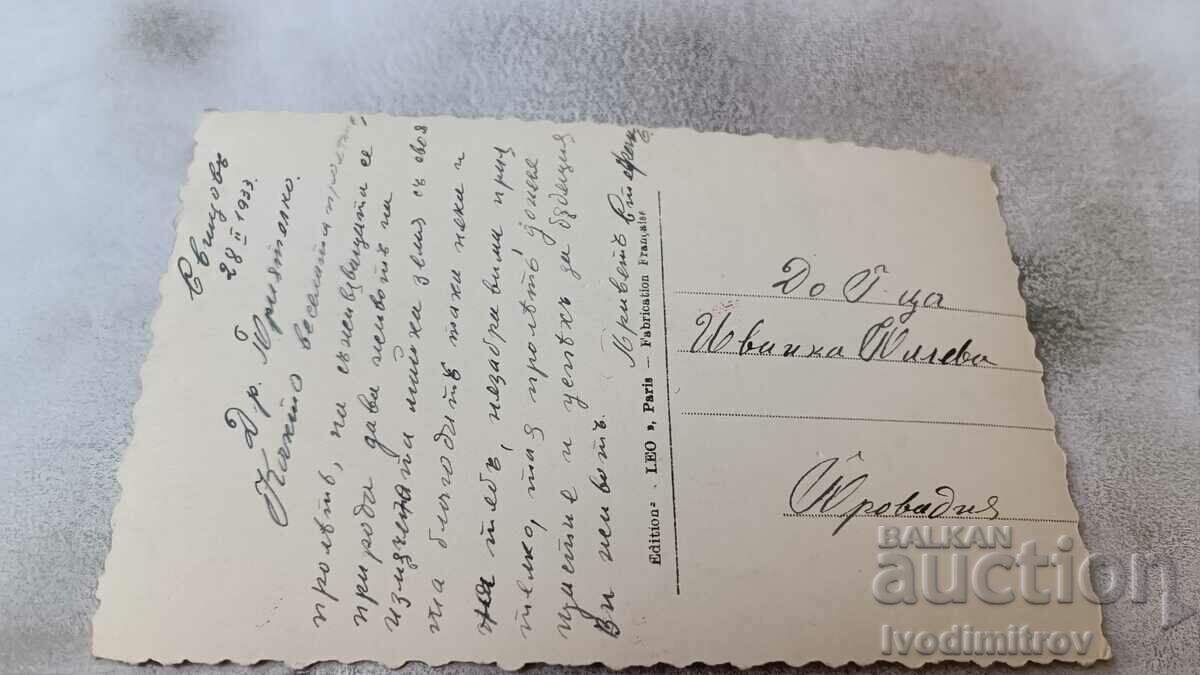 Свищовъ
28 II 1933.
Др. Приятелко.
Както веселата
пролѣть, на съживената се
природа дава животъ на
майка земя съ своя
та благодать таки нека и
на тебъ, незабравима прия
телко, тая пролѣть донесе
щастие и успѣхъ за бѫдещия
Ви животъ. Привѣтъ
Edition « LEO », Paris — Fabrication Française
До Г-ца
Иванка Колева
Провадия
BALKAN
auction
Ivodimitrov